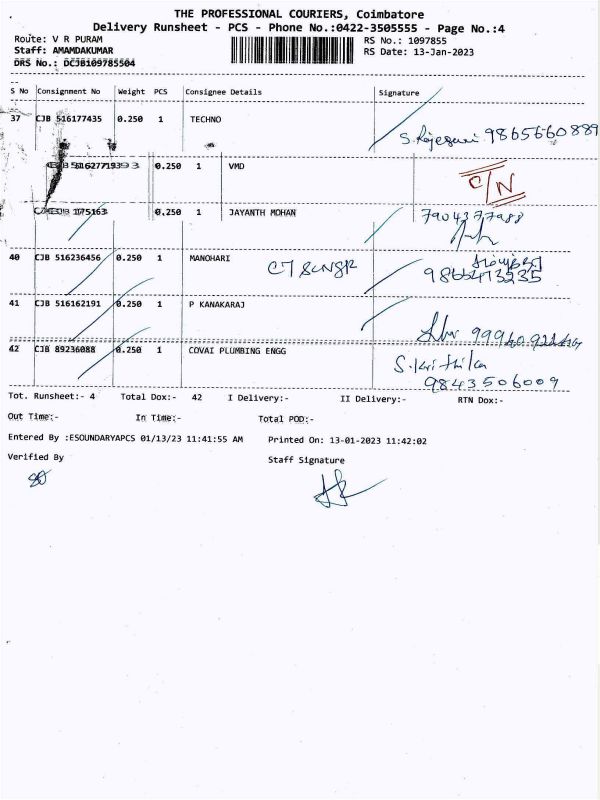 THE PROFESSIONAL COURIERS, Coimbatore
Delivery Runsheet - PCS - Phone No.:0422-3505555 - Page No.:4
Route: V R PURAM RS No.: 1097855
Staff: AMAMDAKUMAR RS Date: 13-Jan-2023
DRS No.: DCJB109785504
S No Consignment No Weight PCS Consignee Details Signature
37 CJB 516177435 0.250 1 TECHNO
9865660889
0.250 1 VMD
C/N
175163 0.250 1 JAYANTH MOHAN
7904377988
40 CJB 516236456 0.250 1 MANOHARI
9865473235
41 CJB 516162191 0.250 1 P KANAKARAJ
42 CJB 89236088 0.250 1 COVAI PLUMBING ENGG
S. Krithika
9843506009
Tot. Runsheet:- 4 Total Dox:- 42 I Delivery:- II Delivery:- RTN Dox:-
Out Time:- In Time:- Total POD:-
Entered By :ESOUNDARYAPCS 01/13/23 11:41:55 AM Printed On: 13-01-2023 11:42:02
Verified By Staff Signature